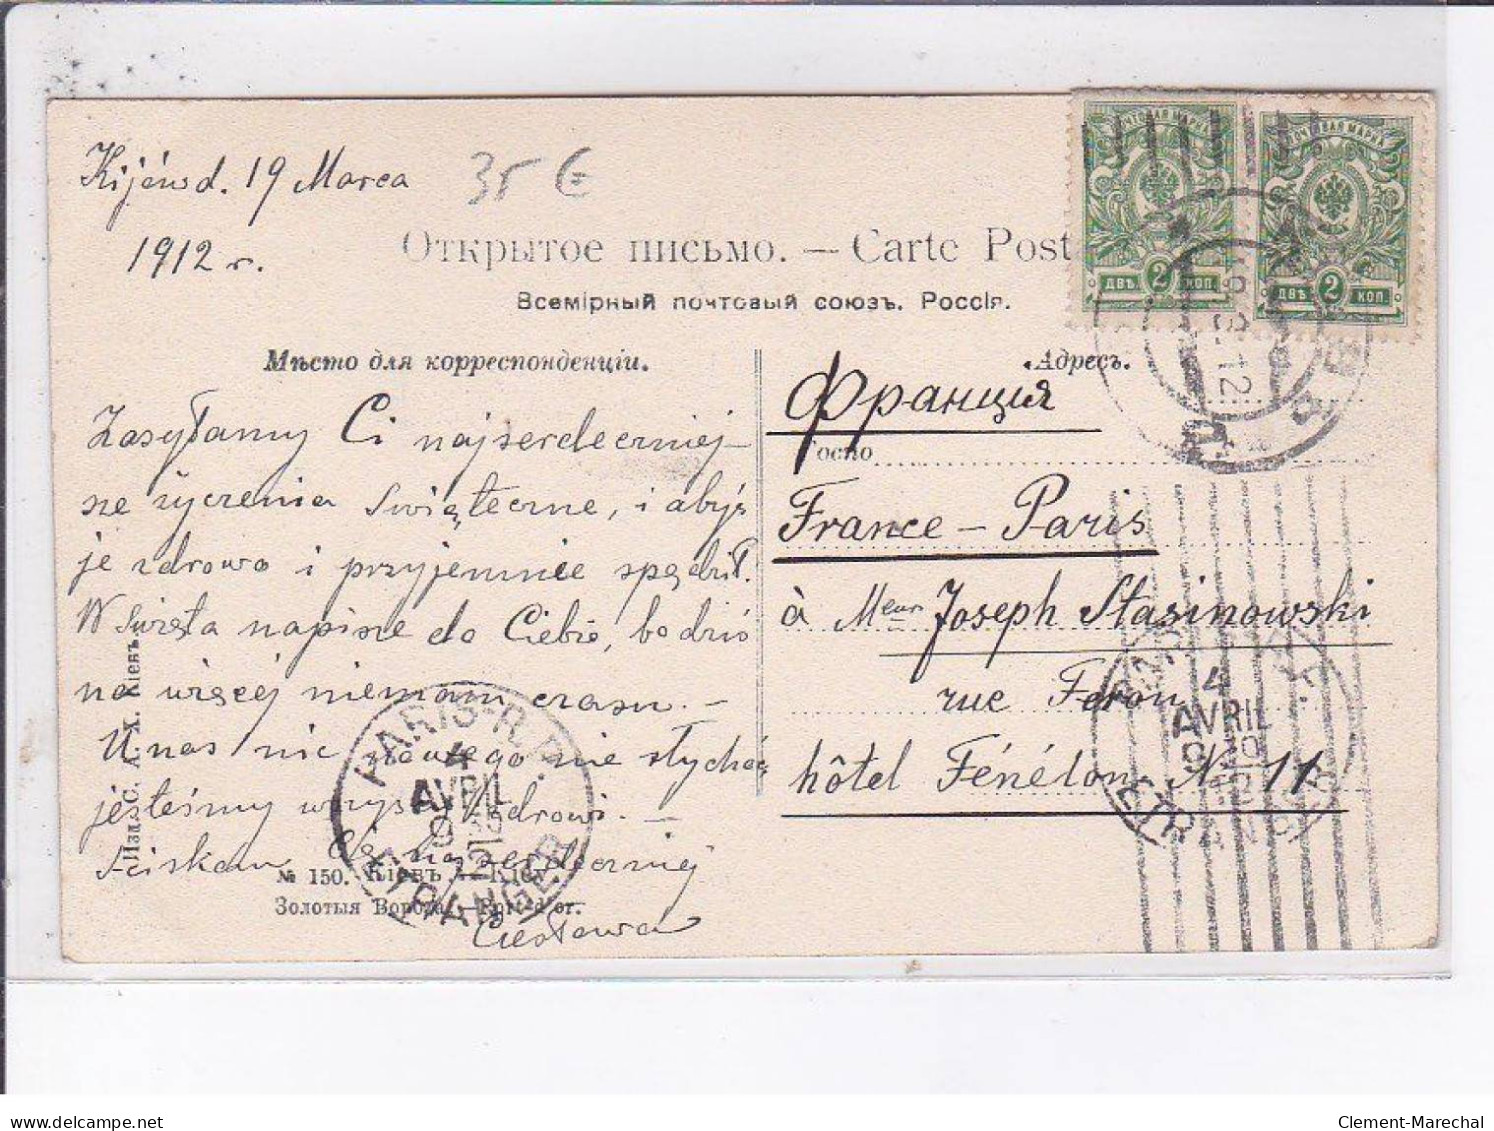 Kijów d. 19 Marca
1912 r.
35 €
Открытое письмо. — Carte Post
Всемірный почтовый союзъ. Россія.
Мѣсто для корреспонденціи.
Адресъ.
ПОЧТОВАЯ МАРКА
ДВѢ 2 КОП
ПОЧТОВАЯ МАРКА
ДВѢ 2 КОП
Zasyłamy Ci najserdeczniej-
sze życzenia Świąteczne, i abyś
je zdrowo i przyjemnie spędził.
W Święta napisze do Ciebie, bo dziś
na więcej niemam czasu. —
U nas nic nowego nie słychać
jesteśmy wszyscy zdrowi. —
Sciskam Cię najserdeczniej
Франція
Госпо
France - Paris
à Meur Joseph Stasinowski
rue Feron
hôtel Fénélon N 11
PARIS-R.P.
4
AVRIL
ETRANGER
4
AVRIL
ETRANGER
Изд. С. А. Х. Кіевъ.
№ 150. Кіевъ.—Kiev.
Золотыя Ворота.—Port d'or.
Clement-Marechal
www.delcampe.net